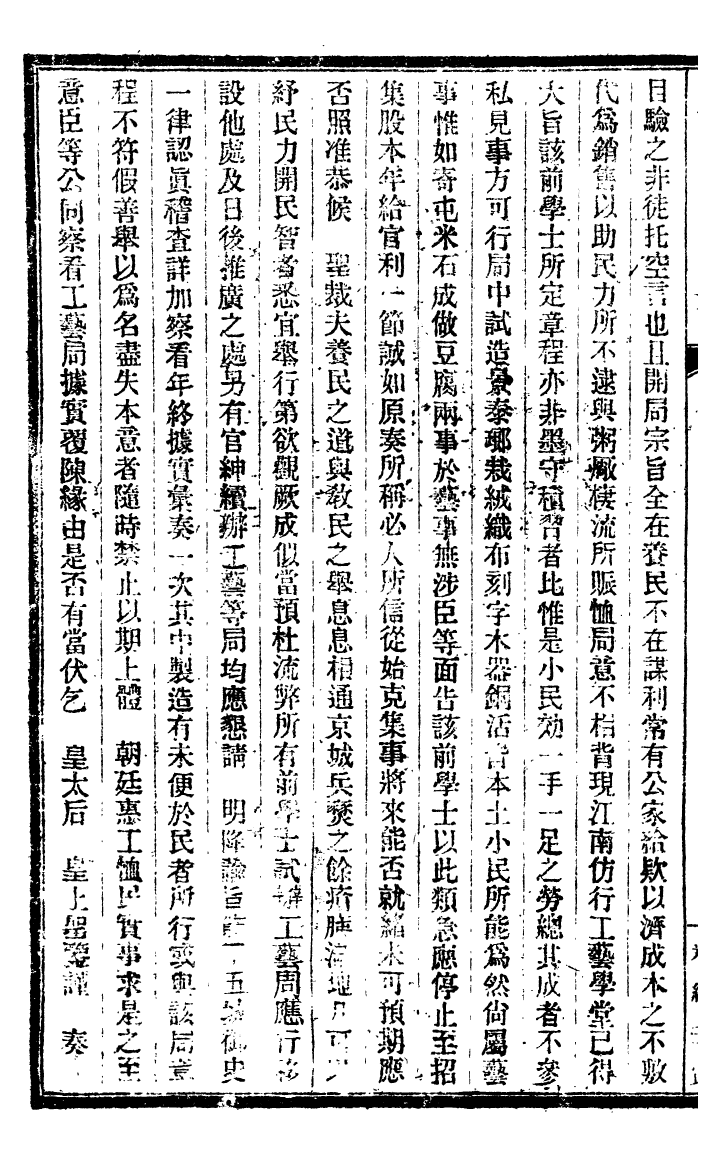 目驗之非徒托空言也且開局宗旨全在養民不在謀利常有公家給欵以濟成本之不敷
代爲銷售以助民力所不逮與粥廠棲流所賑恤局意不相背現江南仿行工藝學堂已得
大旨該前學士所定章程亦非墨守積習者比惟是小民効一手一足之勞總其成者不參
私見事方可行局中試造景泰瑯栽絨織布刻字木器銅活皆本土小民所能爲然尙屬藝
事惟如寄屯米石成做豆腐兩事於藝事無涉臣等面告該前學士以此類急應停止至招
集股本年給官利一節誠如原奏所稱必人所信從始克集事將來能否就緒未可預期應
否照准恭候　聖裁夫養民之道與敎民之舉息息相通京城兵燹之餘瘡
紓民力開民智者悉宜舉行第欲觀厥成似當預杜流弊所有前學士試辦工藝局應行
設他處及日後推廣之處另有官紳續辦工藝等局均應懇請　明降諭旨　五城御史
一律認眞稽查詳加察看年終據實彙奏一次其中製造有未便於民者所行或與該局章
程不符假善舉以爲名盡失本意者隨時禁止以期上體　朝廷惠工恤民實事求是之至
意臣等公同察看工藝局據實覆陳緣由是否有當伏乞　皇太后　皇上聖鑒謹　奏